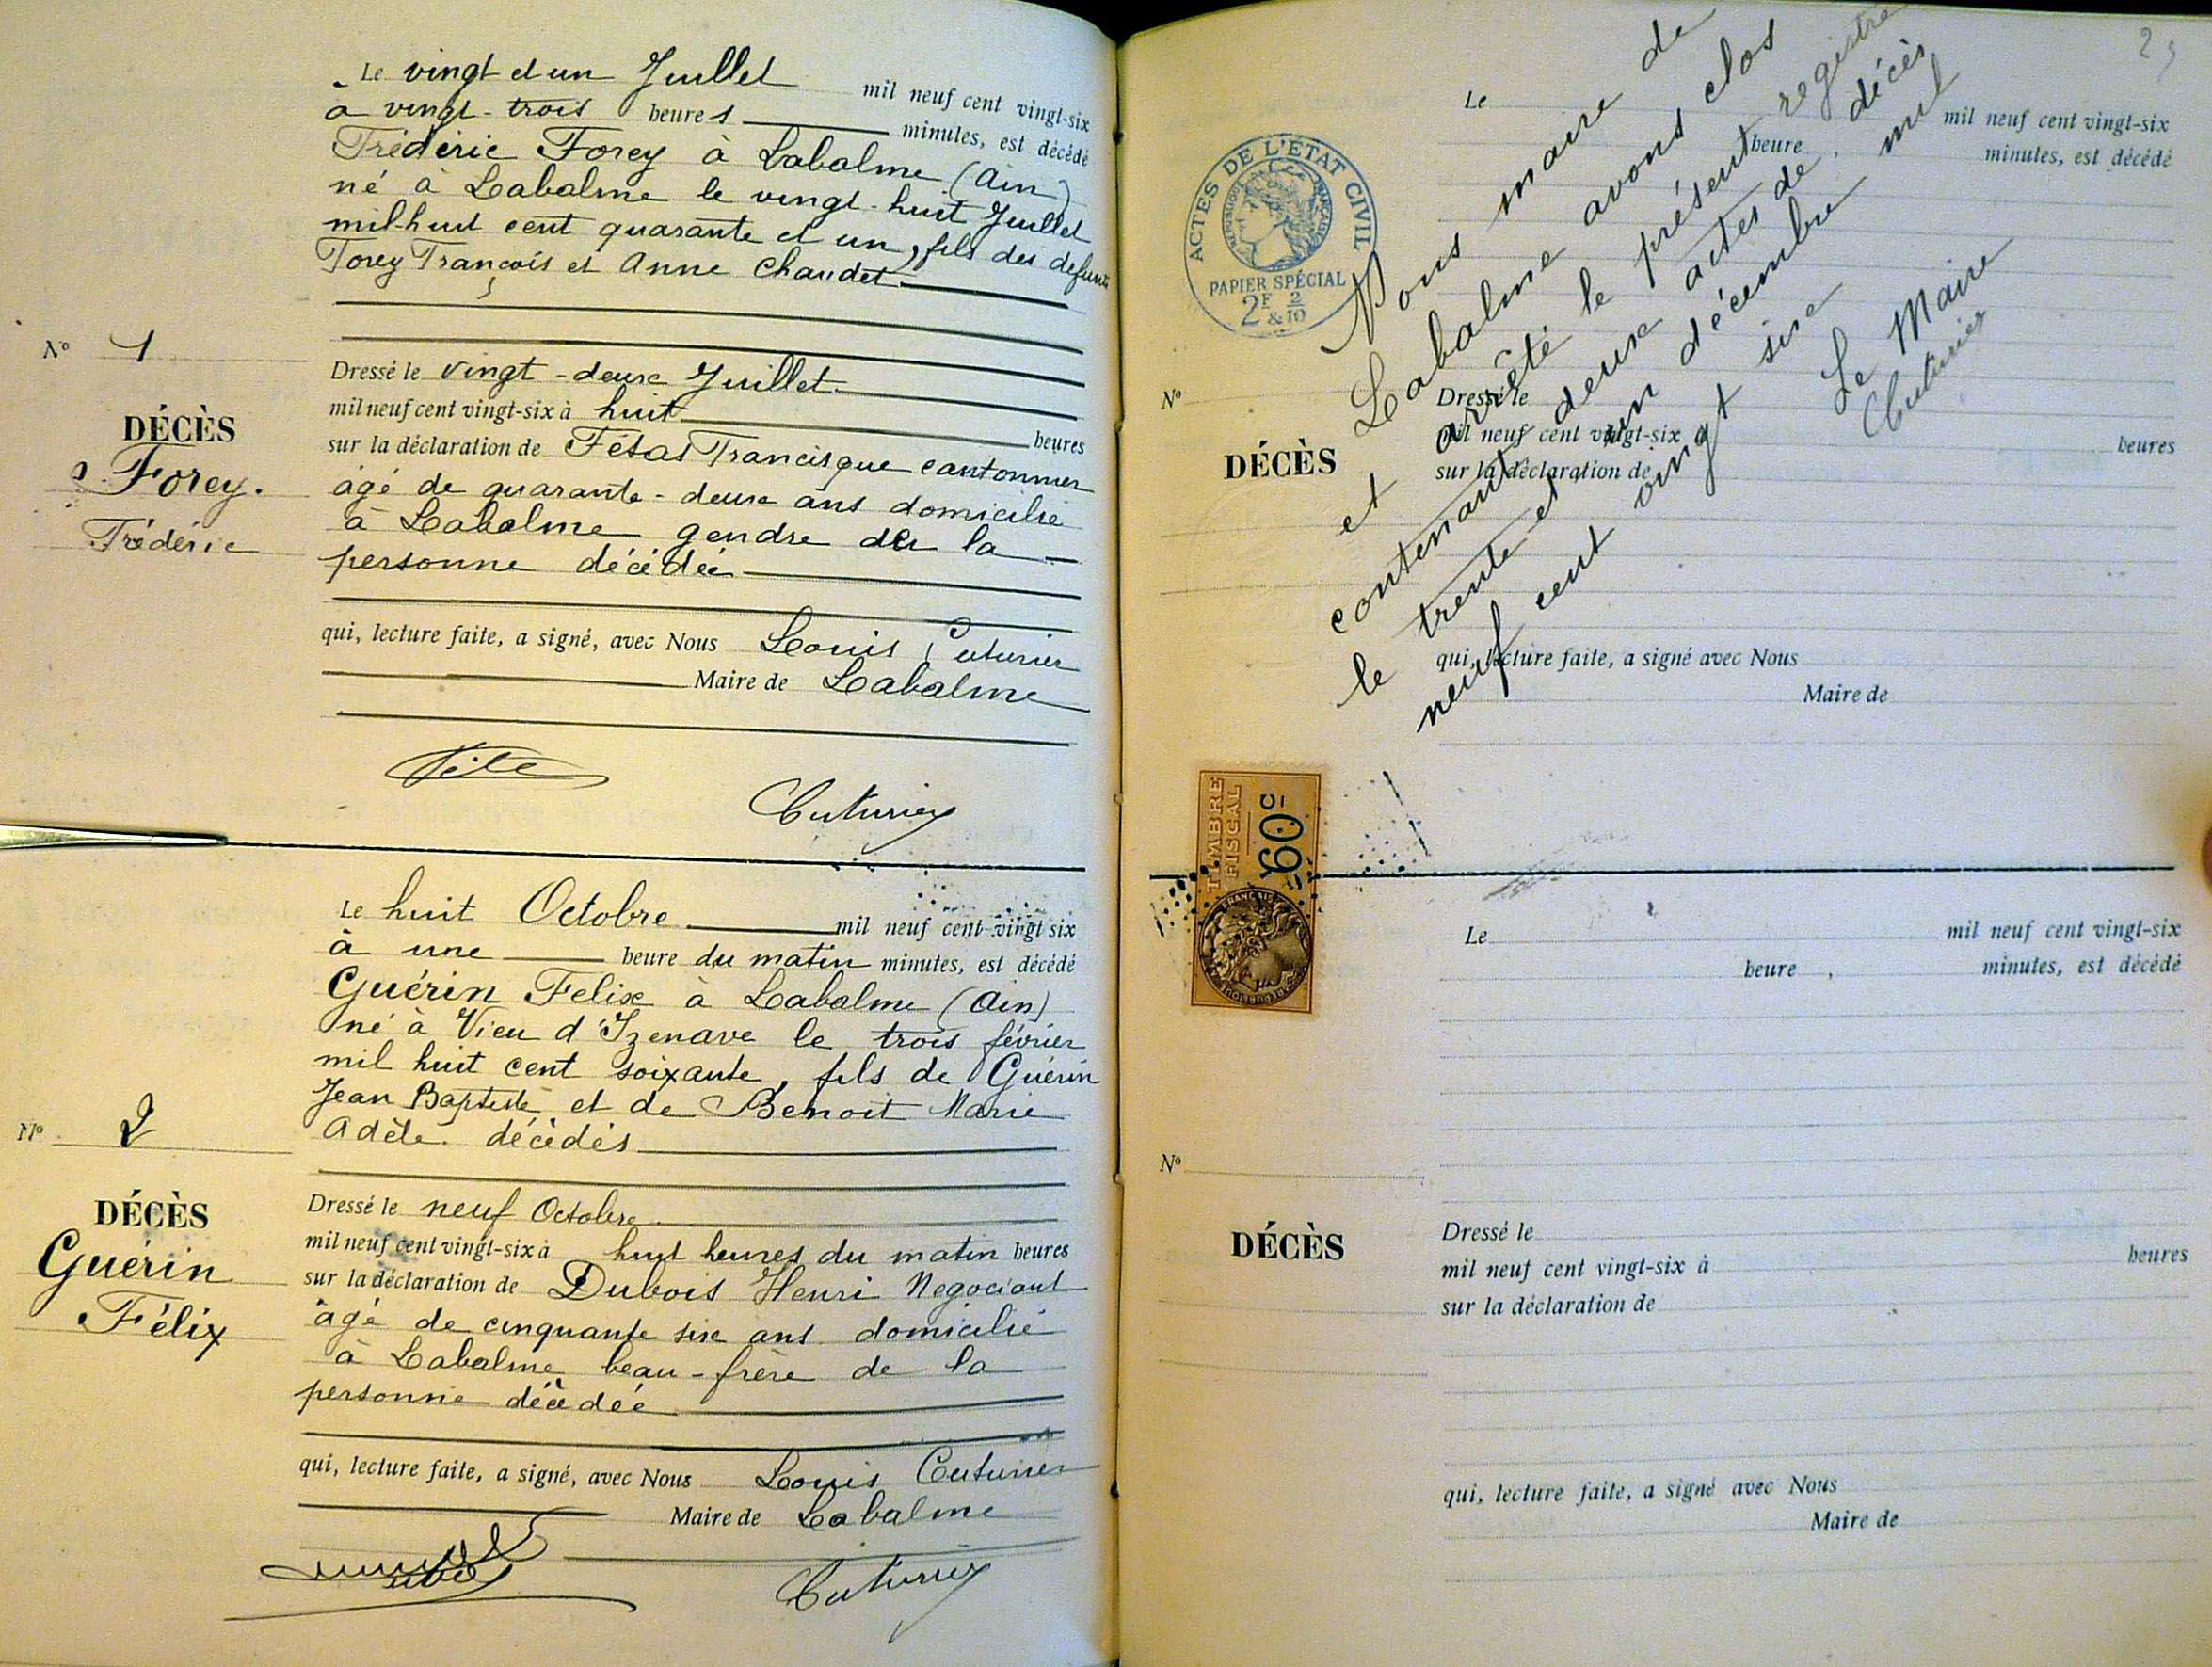 Le vingt et un Juillet mil neuf cent vingt-six
à vingt-trois heures minutes, est décédé
Frédéric Forey à Labalme (Ain)
né à Labalme le vingt-huit Juillet
mil-huit cent quarante et un, fils des defunts
Forey François et Anne Chaudet
Nº 1
DÉCÈS
Forey.
Frédéric
Dressé le vingt-deux Juillet
mil neuf cent vingt-six à huit heures
sur la déclaration de Francisque cantonnier
âgé de quarante-deux ans domicilié
à Labalme gendre de la
personne décédée
qui, lecture faite, a signé, avec Nous Louis Cuturier
Maire de Labalme
Cuturier
Le huit Octobre mil neuf cent vingt six
à une heure du matin minutes, est décédé
Guérin Felix à Labalme (Ain)
né à Vieu d'Izenave le trois février
mil huit cent soixante, fils de Guérin
Jean Baptiste et de Benoit Marie
Adèle décédés
Nº 2
DÉCÈS
Guérin
Félix
Dressé le neuf Octobre
mil neuf cent vingt-six à huit heures du matin heures
sur la déclaration de Dubois Henri Negociant
âgé de cinquante six ans domicilié
à Labalme beau-frère de la
personne décédée
qui, lecture faite, a signé, avec Nous Louis Cuturier
Maire de Labalme
Cuturier
ACTES DE L'ÉTAT CIVIL
RÉPUBLIQUE FRANÇAISE
PAPIER SPÉCIAL
2F & 2/10
Nous maire de
Labalme avons clos
et arrêté le présent registre
contenant deux actes de décès
le trente et un décembre mil
neuf cent vingt six
Le Maire
Cuturier
Le mil neuf cent vingt-six
heure minutes, est décédé
Nº
DÉCÈS
Dressé le
mil neuf cent vingt-six à heures
sur la déclaration de
qui, lecture faite, a signé avec Nous
Maire de
TIMBRE
FISCAL
60c
Le mil neuf cent vingt-six
heure minutes, est décédé
Nº
DÉCÈS
Dressé le
mil neuf cent vingt-six à heures
sur la déclaration de
qui, lecture faite, a signé avec Nous
Maire de